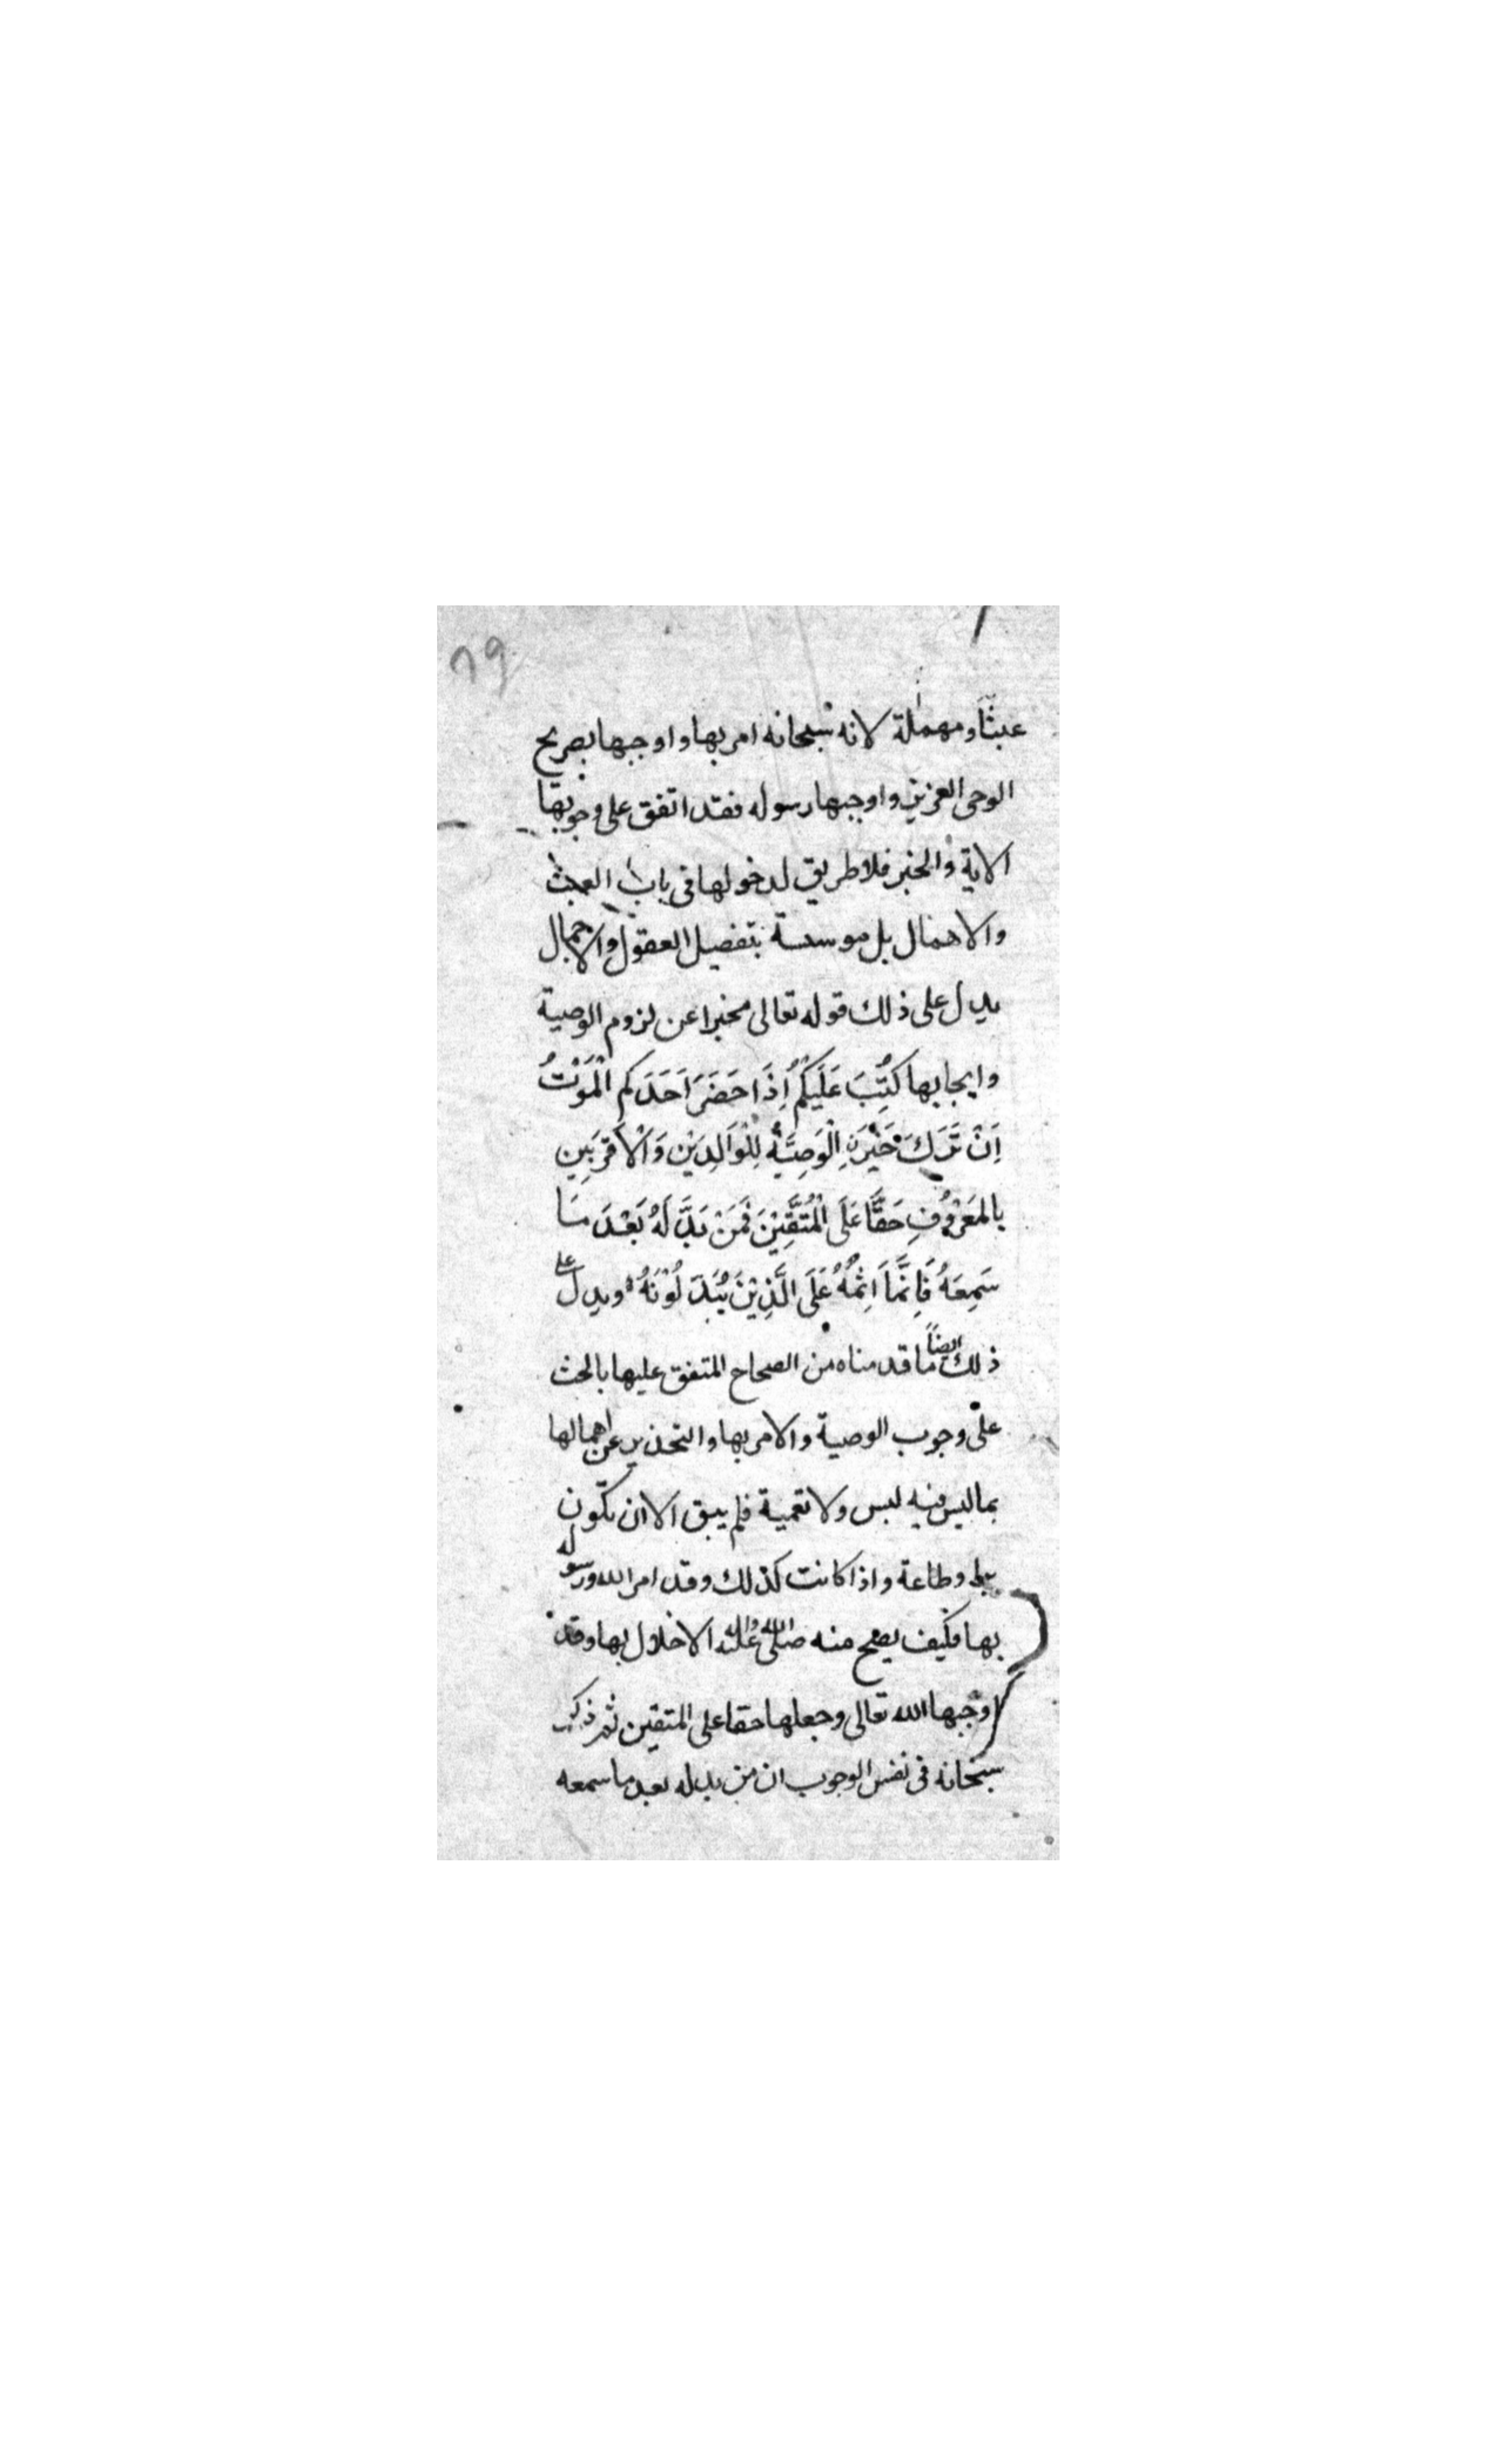 ٦٩
عبثاً ومهملة لانه سبحانه امر بها واوجبها بصريح
الوحى العزيز واوجبها رسوله فقد اتفق على وجوبها
الاية والخبر فلا طريق لدخولها فى باب العبث
والاهمال بل موسسة بتفصيل العقول والاجمال
يدل على ذلك قوله تعالى مخبرا عن لزوم الوصية
وايجابها كُتِبَ عَلَيْكُمْ اِذَا حَضَرَ اَحَدَكُم الْمَوْتُ
اِنْ تَرَكَ خَيْرَنِ الْوَصِيَّةُ لِلْوَالِدَيْنِ وَالْاَقْرَبِينِ
بِالمَعْرُوُفِ حَقًّا عَلَى الْمُتَّقِيْنَ فَمَنْ بَدَّلَهُ بَعْدَ مَا
سَمِعَهُ فَاِنَّمَا اِثْمُهُ عَلَى الَّذِيْنَ يُبَدِلُوْنَهُ ويدل على
ذلك ايضاً ما قدمناه من الصحاح المتفق عليها بالحث
على وجوب الوصية والامر بها والتحذير عن اهمالها
بما ليس فيه لبس ولا تعمية فلم يبق الا ان تكون
وطاعة واذا كانت كذلك وقد امر الله ورسوله
بها فكيف يصح منه صلى الله عليه واله الاخلال بها وقد
اوجبها الله تعالى وجعلها حقا على المتقين ثم ذكر
سبحانه فى نفس الوجوب ان من بدله بعد ما سمعه